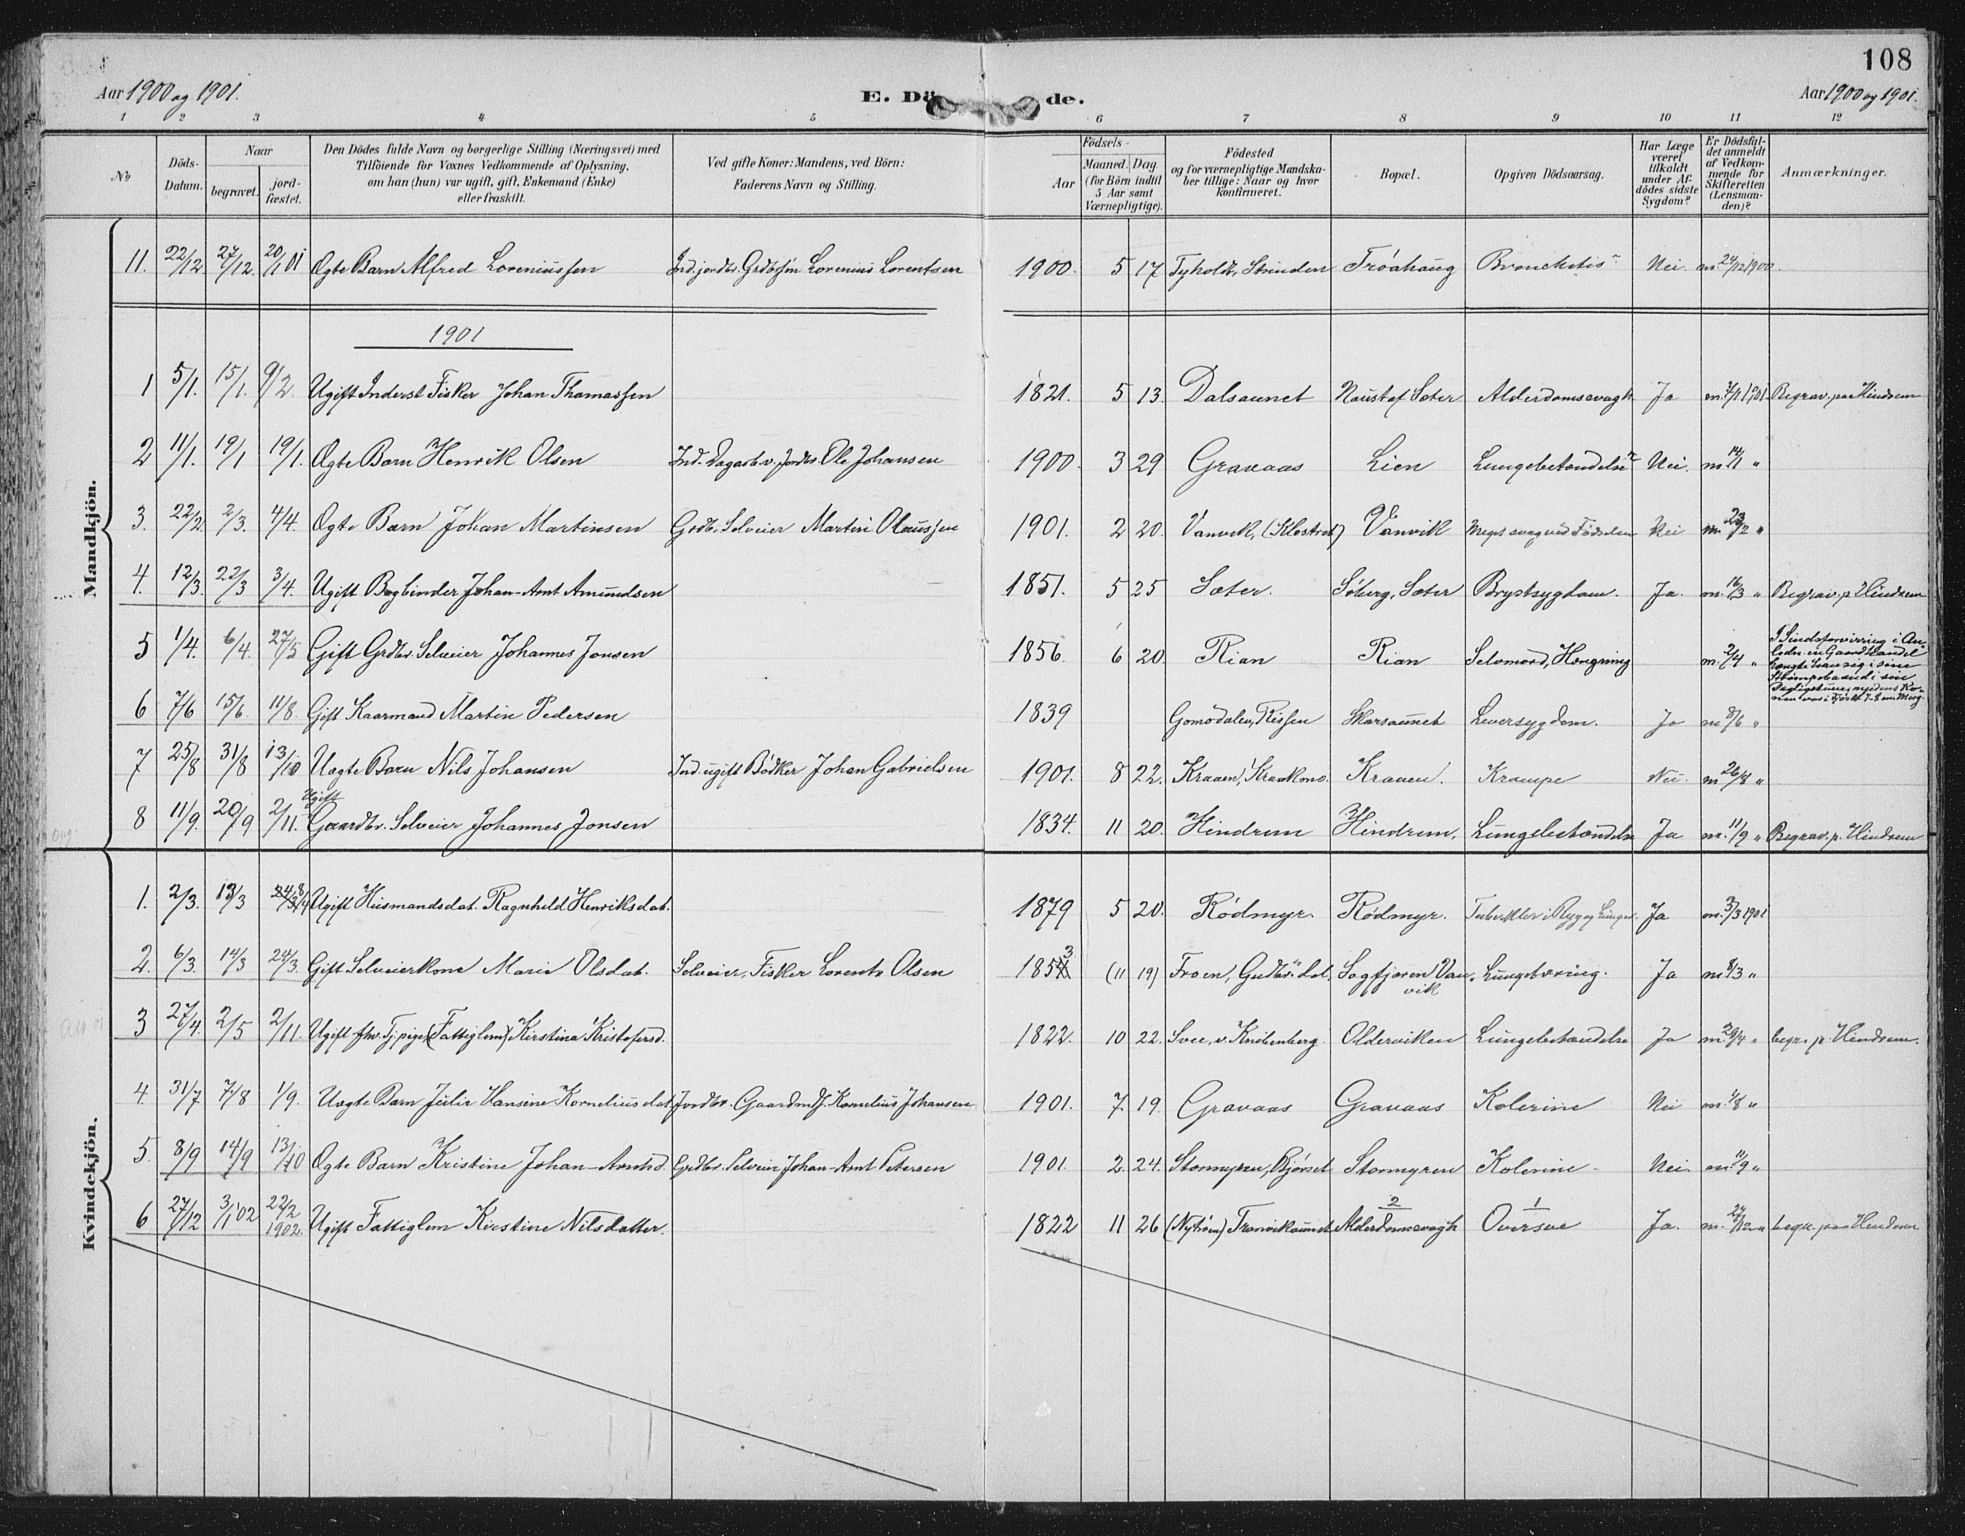 108
Aar 1900 og 1901. E. Dö de. Aar 1900 og 1901.
1 2 3 4 5 6 7 8 9 10 11 12
No
Döds-Datum.
Naar
begravet.
jord-fæstet.
Den Dödes fulde Navn og borgerlige Stilling (Næringsvei) med
Tilföiende for Voxnes Vedkommende af Oplysning,
om han (hun) var ugift, gift, Enkemand (Enke)
eller fraskilt.
Ved gifte Koner: Mandens, ved Börn:
Faderens Navn og Stilling.
Födsels-
Aar
Maaned. Dag.
(for Börn indtil
5 Aar samt
Værnepligtige).
Födested
og for værnepligtige Mandska-
ber tillige: Naar og hvor
konfirmeret.
Bopæl.
Opgiven Dödsaarsag.
Har Læge
været
tilkaldt
under Af-
dödes sidste
Sygdom?
Er Dödsfal-
det anmeldt
af Vedkom-
mende for
Skifteretten
(Lensman-
den)?
Anmærkninger.
Mandkjön.
11. 22/12 27/12. 20/1 01 Ægte Barn Alfred Loreniussen Ind. jordbr. Grdbrsøn Lorenius Lorentsen 1900. 5 17 Tyholdt, Strinden Tróahaug Bronchitis Nei. m. 24/12 1900.
1901
1 5/1. 15/1. 9/2 Ugift Inderst Fisker Johan Thomassen 1821. 5 13. Dalsaunet Naust af Sæter Alderdomssvagh. Ja m. 7/1 1901. Begrav. paa Hindrem
2 11/1. 19/1 19/1. Ægte Barn Henrik Olsen Ind. Dagarb. v. Jordbr Ole Johansen 1900. 3 29 Gravaas Lien Lungebetændelse Nei. m. 14/1 "
3. 22/2. 2/3. 4/4. Ægte Barn Johan Martinsen Grdbr. Selveier Martin Olaussen 1901. 2 20. Vanvik, (Klostret) Vanvik Meget svag ved Fødselen Nei m. 23/2 "
4. 12/3. 22/3 3/4. Ugift Bogbinder Johan-Arnt Amundsen 1851. 5 25 Sæter. Söberg, Sæter Brystsygdom. Ja. m. 16/3 " Begrav. p. Hindrem
5 1/4. 6/4. 27/5 Gift Grdbr. Selveier Johannes Jonsen 1856. 6 20. Rian Rian Selvmord, Hængning m. 2/4 "
I Sindsforvirring i An-
ledn. en Gaardhandel
hængte han sig i sine
Strømpebaand i sin
Dagligstue, medens Ko-
nen var i Fjöset 7-8 om Morg.
6 7/6 15/6. 11/8. Gift Kaarmand Martin Pedersen 1839 Gomodalen, Rissen Skarsaunet Leversygdom. Ja m. 8/6 "
7 25/8 31/8 13/10 Uægte Barn Nils Johansen Ind. ugift Bödker Johan Gabrielsen 1901. 8 22. Kraaen, Kraakmo. Kraaen. Krampe Nei. m. 26/8 "
Ugift
8 11/9. 20/9 2/11. Gaardbr. Selveier Johannes Jonsen 1834. 11 20. Hindrem Hindrem, Lungebetændelse Ja m. 11/9 " Begrav. p. Hindrem
Kvindekjön.
1. 2/3. 13/3 Ugift Husmandsdat. Ragnhild Henriksdat. 1879 5 20. Rödmyr. Rödmyr. Tuberkler i Ryg og Lunger. Ja m. 3/3 1901
2. 6/3. 14/3 24/3. Gift Selveierkone Marie Olsdat. Selveier, Fisker Lorents Olsen 1853 (11 19) Troen, Gudbr. dal. Sagfjæren Vanvik Lungetæring. Ja m. 8/3 "
3 27/4. 2/5 2/11. Ugift fhv. Tj.pige (Fattiglem) Kirstina Kristofersd. 1822. 10 22. Svee, v. Olderviken Lungebetændelse Ja m. 29/4 " begr. p. Hindrem.
4. 31/7 7/8 1/9. Uægte Barn Julie Hansine Korneliusdat Jordbr. Gaardmdf. Kornelius Johansen 1901. 7. 19. Gravaas Gravaas Kolerine Nei m. 1/8 "
5. 8/9 14/9 13/10 Ægte Barn Kristine Johan-Arntsd. Grdbr. Selveier Johan-Arnt Petersen 1901. 2. 24. Stormyren, Bjørset Stormyren Kolerine Nei. m. 11/9 "
6 27/12 3/1 '02 22/2 1902. Ugift Fattiglem Kirstine Nilsdatter. 1822 11 26 (Nytrøen) Tranvikaunet 2 Alderdomssvagh 1 Oversve Ja. m. 27/12 " begr. paa Hindrem